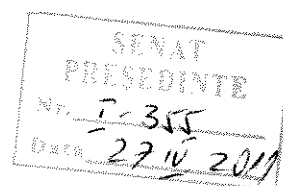 SENAT
PREȘEDINTE
Nr. I-355
Data 27 IV 2011